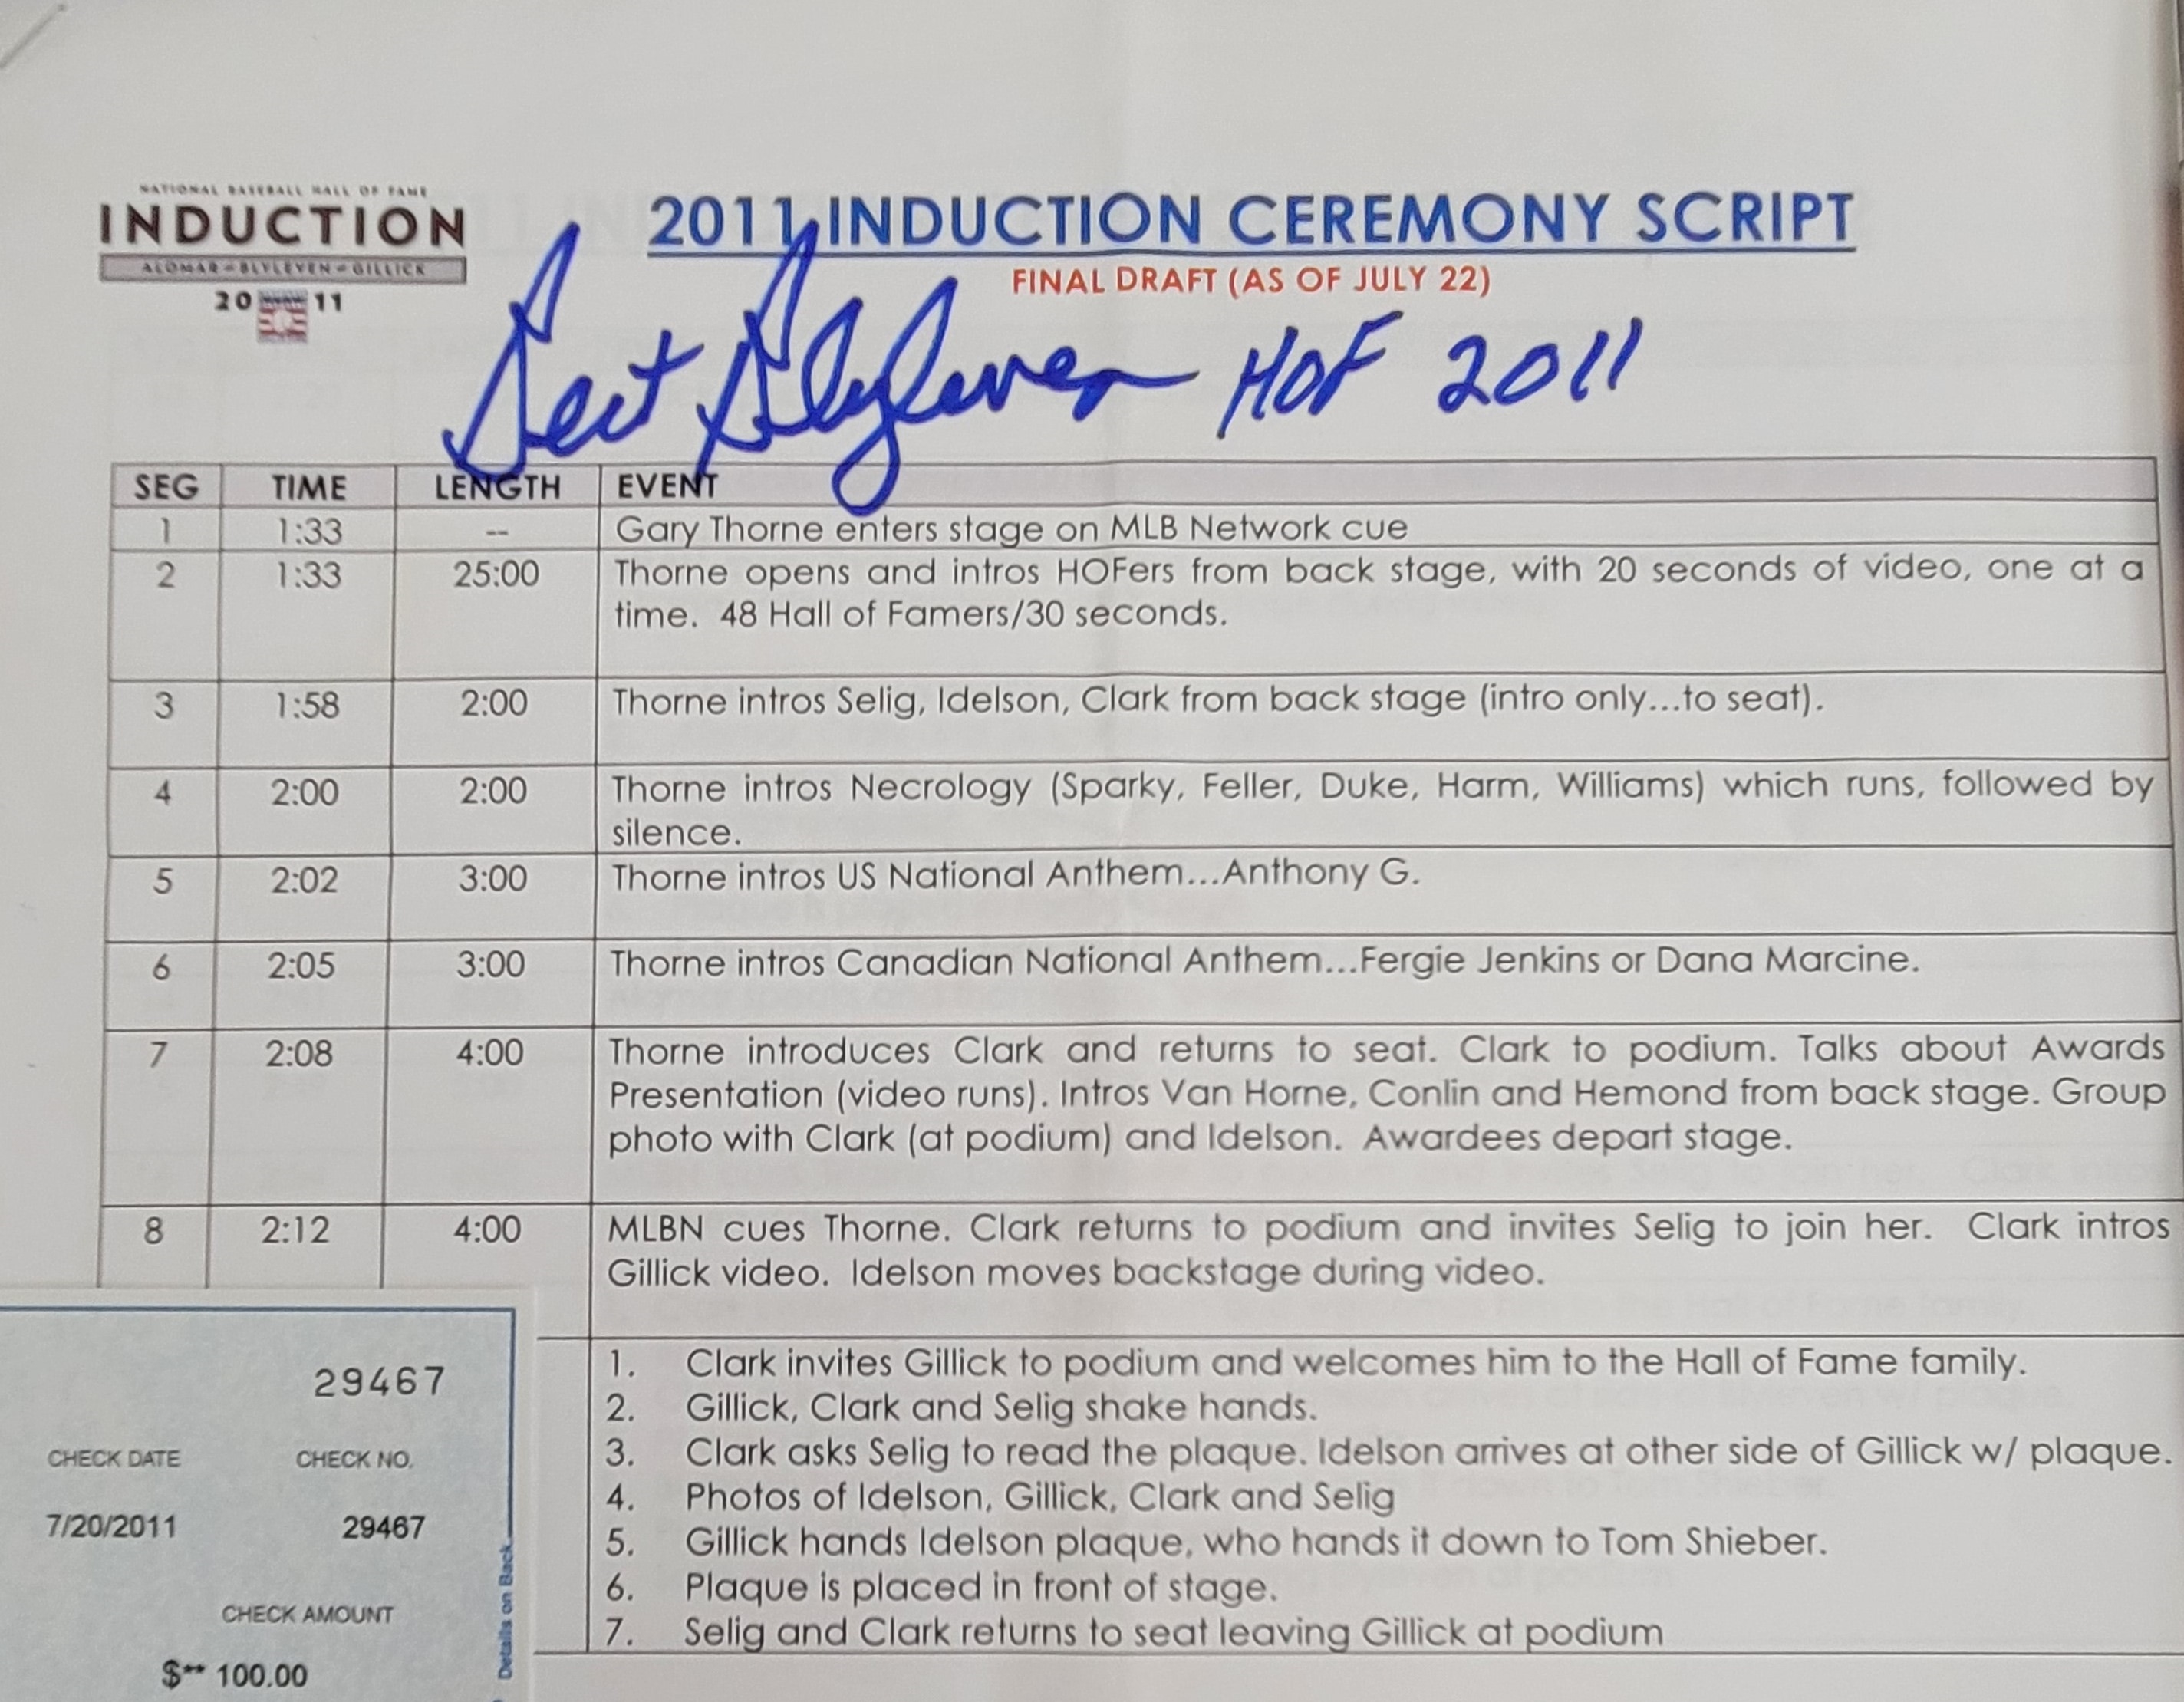 NATIONAL BASEBALL HALL OF FAME
INDUCTION
ALOMAR - BLYLEVEN - GILLICK
20 11
2011 INDUCTION CEREMONY SCRIPT
FINAL DRAFT (AS OF JULY 22)
Bert Blyleven HOF 2011
SEG TIME LENGTH EVENT
1 1:33 -- Gary Thorne enters stage on MLB Network cue
2 1:33 25:00 Thorne opens and intros HOFers from back stage, with 20 seconds of video, one at a
time. 48 Hall of Famers/30 seconds.
3 1:58 2:00 Thorne intros Selig, Idelson, Clark from back stage (intro only...to seat).
4 2:00 2:00 Thorne intros Necrology (Sparky, Feller, Duke, Harm, Williams) which runs, followed by
silence.
5 2:02 3:00 Thorne intros US National Anthem...Anthony G.
6 2:05 3:00 Thorne intros Canadian National Anthem...Fergie Jenkins or Dana Marcine.
7 2:08 4:00 Thorne introduces Clark and returns to seat. Clark to podium. Talks about Awards
Presentation (video runs). Intros Van Horne, Conlin and Hemond from back stage. Group
photo with Clark (at podium) and Idelson. Awardees depart stage.
8 2:12 4:00 MLBN cues Thorne. Clark returns to podium and invites Selig to join her. Clark intros
Gillick video. Idelson moves backstage during video.
1. Clark invites Gillick to podium and welcomes him to the Hall of Fame family.
2. Gillick, Clark and Selig shake hands.
3. Clark asks Selig to read the plaque. Idelson arrives at other side of Gillick w/ plaque.
4. Photos of Idelson, Gillick, Clark and Selig
5. Gillick hands Idelson plaque, who hands it down to Tom Shieber.
6. Plaque is placed in front of stage.
7. Selig and Clark returns to seat leaving Gillick at podium
29467
CHECK DATE CHECK NO.
7/20/2011 29467
CHECK AMOUNT
$** 100.00
Details on Back